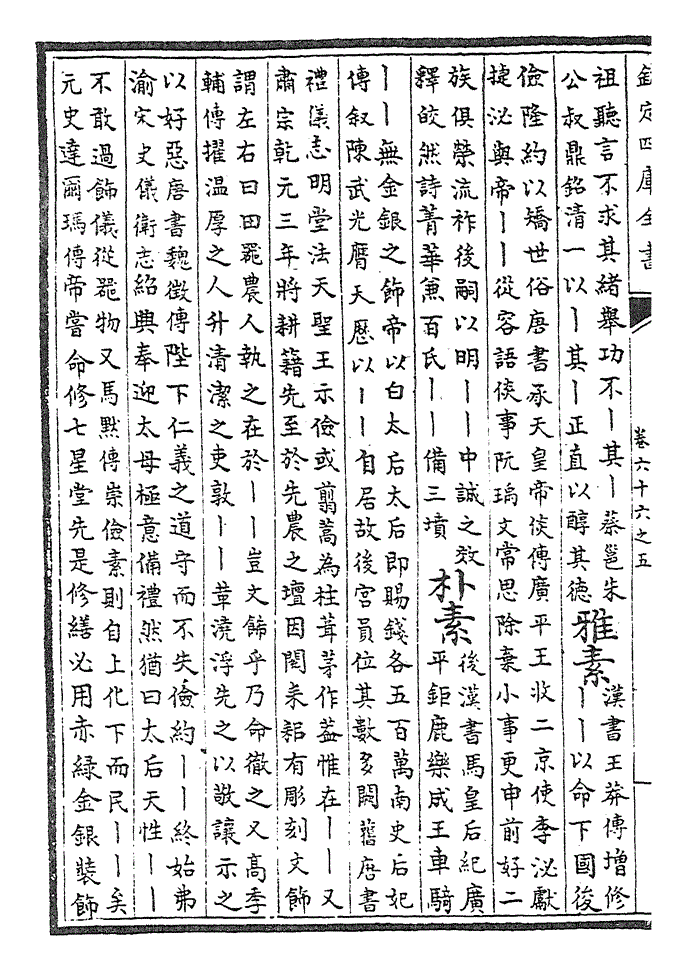 欽定四庫全書
卷六十六之五
祖聽言不求其緒舉功不丨其丨蔡邕朱
公叔鼎銘清一以丨其丨正直以醇其德
雅素
漢書王莽傳增修
丨丨以命下國後
儉隆約以矯世俗唐書承天皇帝倓傳廣平王收二京使李泌獻
捷泌與帝丨丨從容語倓事阮瑀文常思除棄小事更申前好二
族俱榮流祚後嗣以明丨丨中誠之效
釋皎然詩菁華兼百氏丨丨備三墳
朴素
後漢書馬皇后紀廣
平鉅鹿樂成王車騎
丨丨無金銀之飾帝以白太后太后即賜錢各五百萬南史后妃
傳叙陳武光膺天厯以丨丨自居故後宫員位其數多闕舊唐書
禮儀志明堂法天聖王示儉或翦蒿為柱葺茅作葢惟在丨丨又
肅宗乾元三年將耕籍先至於先農之壇因閲耒耜有彫刻文飾
謂左右曰田器農人執之在於丨丨豈文飾乎乃命徹之又高季
輔傳擢温厚之人升清潔之吏敦丨丨革澆浮先之以敬讓示之
以好惡唐書魏徵傳陛下仁義之道守而不失儉約丨丨終始弗
渝宋史儀衛志紹興奉迎太母極意備禮然猶曰太后天性丨丨
不敢過飾儀從器物又馬黙傳崇儉素則自上化下而民丨丨矣
元史達爾瑪傳帝嘗命修七星堂先是修繕必用赤緑金銀裝飾